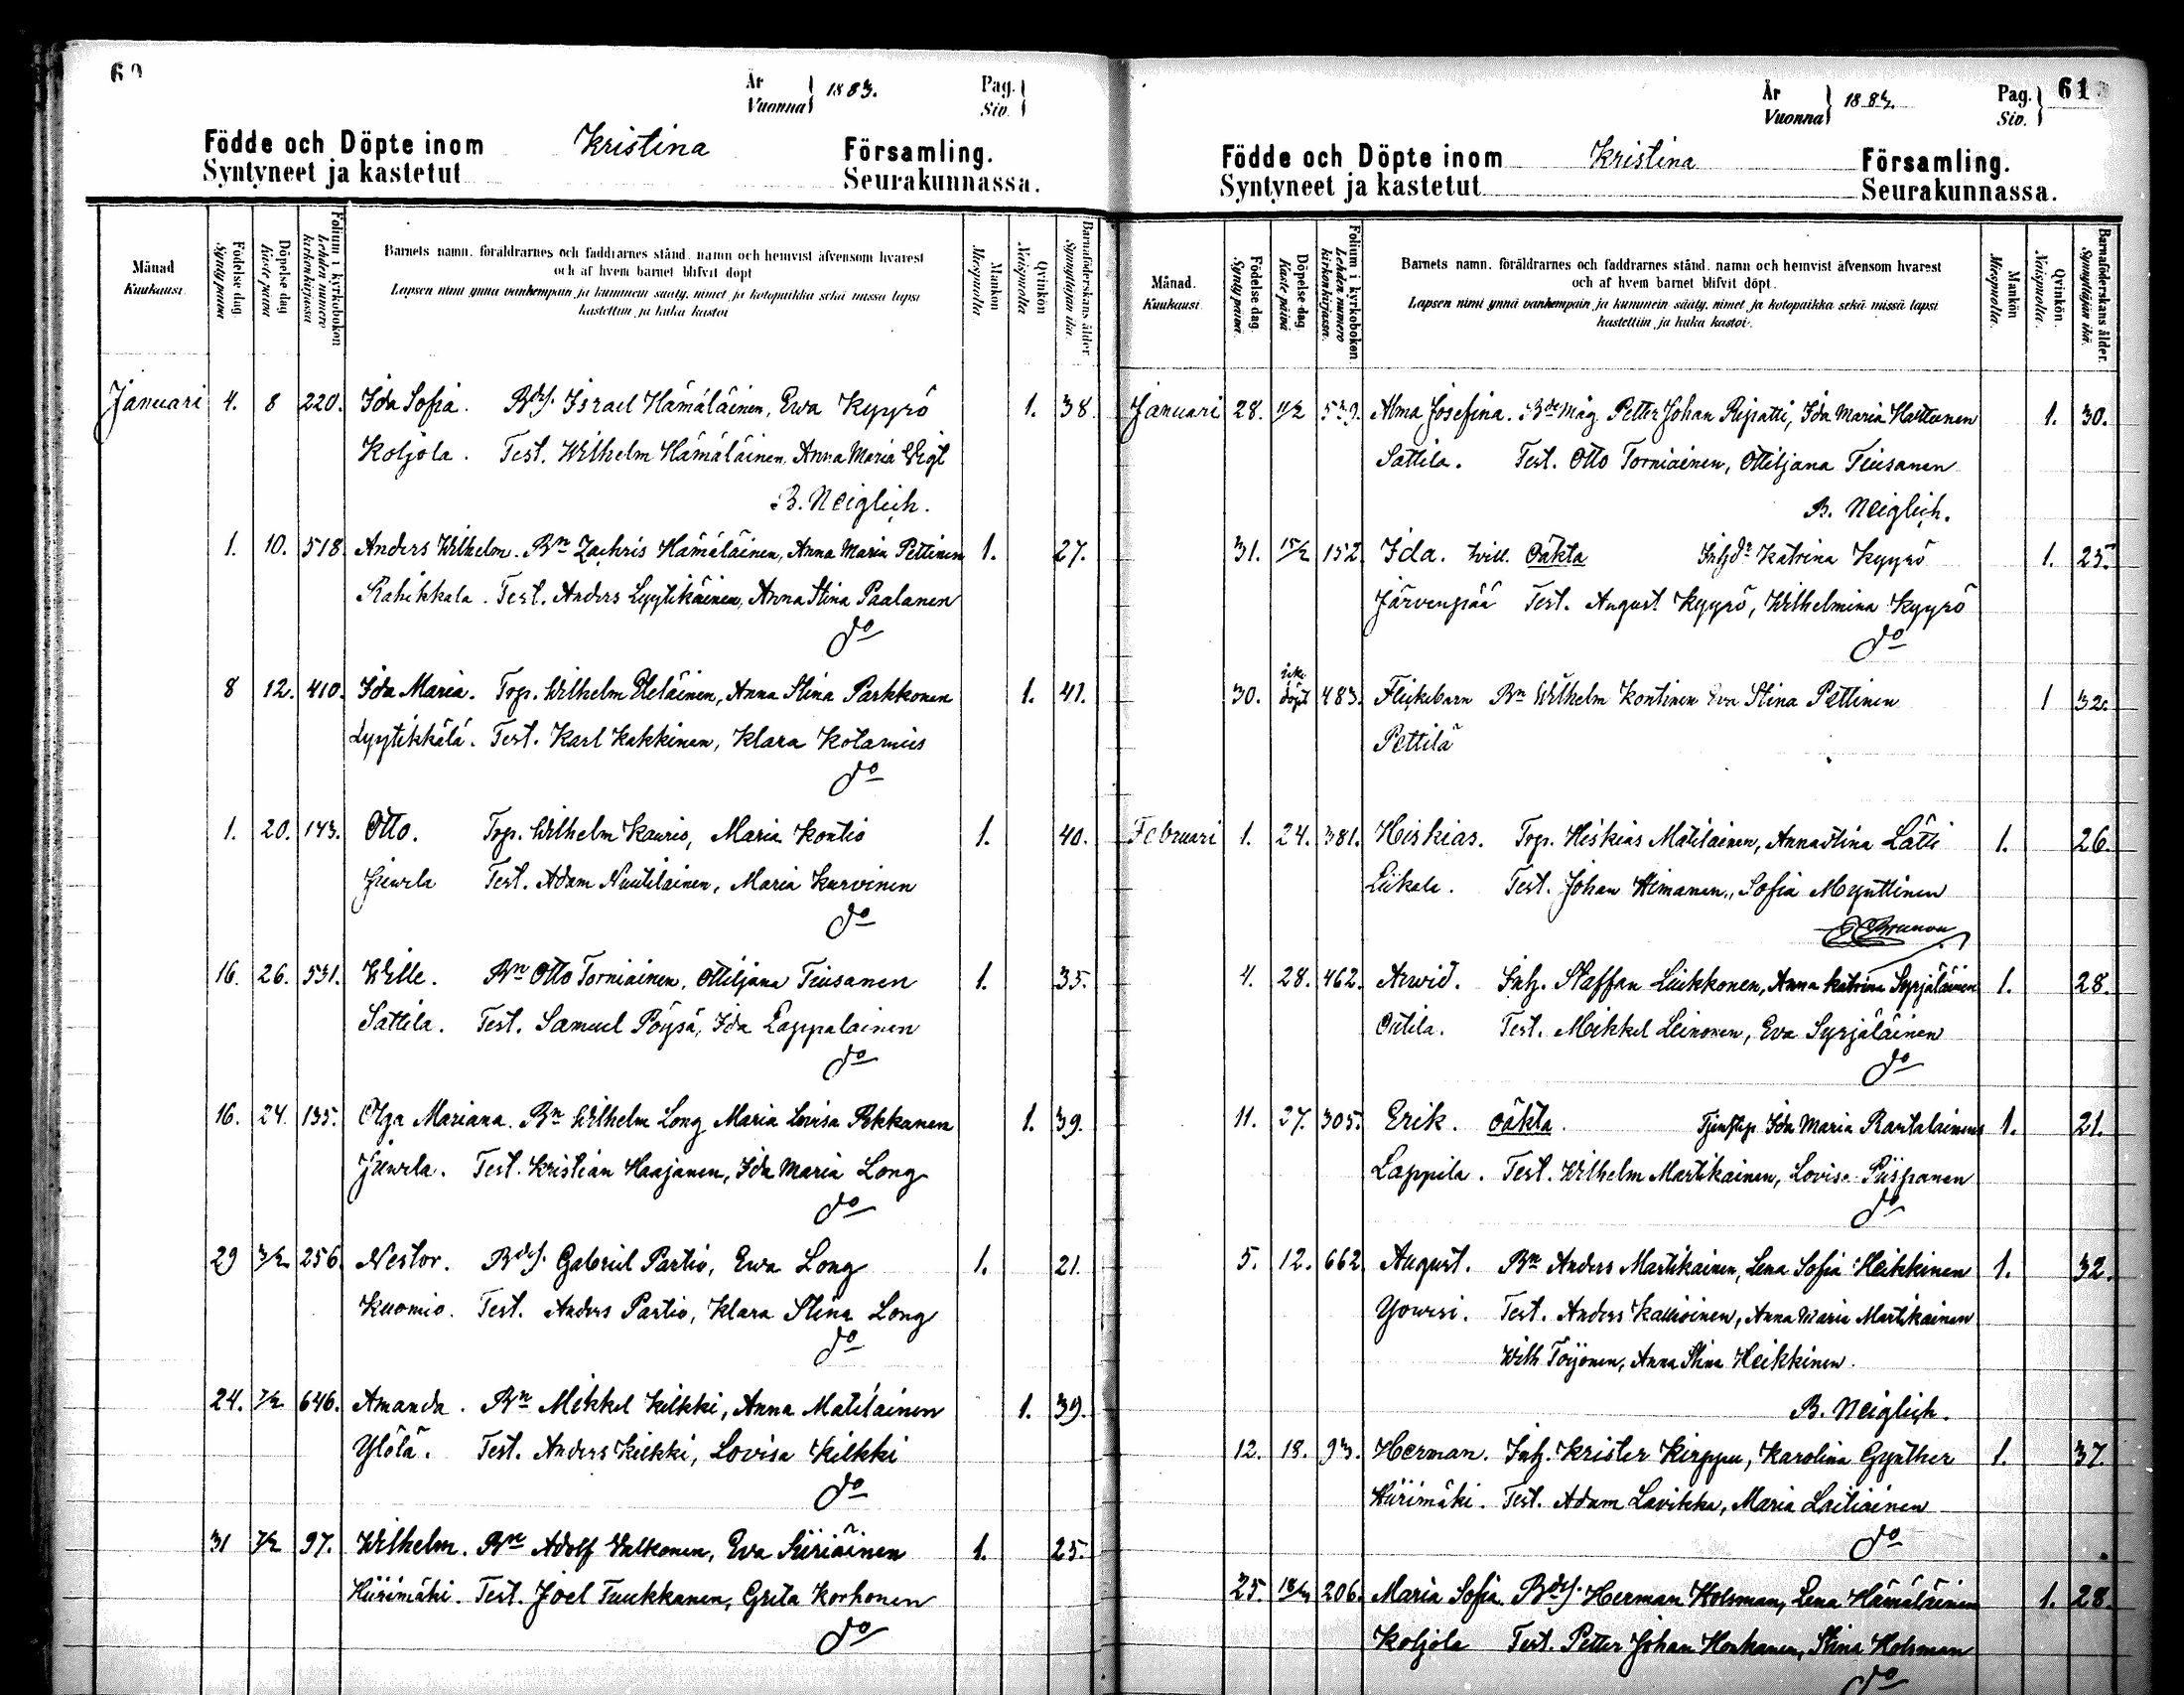 60
År 1883. Pag.
Vuonna Siv.
Födde och Döpte inom Kristina Församling.
Syntyneet ja kastetut Seurakunnassa.
Månad Kuukausi
Födelse dag Synty päivä
Döpelse dag Kaste päivä
Folium i kyrkoboken Lehden numero kirkonkirjassa
Barnets namn, föräldrarnes och faddrarnes stånd, namn och hemvist äfvensom hvarest
och af hvem barnet blifvit döpt
Lapsen nimi ynnä vanhempain ja kummein sääty, nimet ja kotopaikka sekä missä lapsi
kastettiin ja kuka kastoi
Mankön Miespuolia
Qvinkön Naispuolia
Barnaföderskans ålder. Synnyttäjän ikä.
Januari 4. 8 220. Ida Sofia. Bdes. Israel Hämäläinen, Ewa Kyyrö 1. 38.
Koljola. Test. Wilhelm Hämäläinen, Anna Maria
B. Neiglich.
1. 10. 518 Anders Wilhelm. Bn Zachris Hämäläinen, Anna Maria Pettinen 1. 27.
Rahikkala. Test. Anders Lyytikäinen, Anna Stina Paalanen
do
8 12. 410. Ida Maria. Torp. Wilhelm Heläinen, Anna Stina Parkkonen 1. 41.
Lyytikkälä. Test. Karl Kakkinen, Klara
do
1. 20. 143. Otto. Torp. Wilhelm Kaurio, Maria Kontio 1. 40.
Test. Adam Nuutilainen, Maria Kurvinen
do
16. 26. 531. Wille. Bn Otto Torniainen, Ottiljana Tiusanen 1. 35.
Sattila. Test. Samuel Pöysä, Ida Lappalainen
do
16. 24. 135. Olga Mariana. Bn Wilhelm Long Maria Lovisa Pekkanen 1. 39.
Test. Kristian Haajanen, Ida Maria Long
do
29 3/2 256. Nestor. Bdes. Gabriel Partio, Ewa Long 1. 21.
Kuomio. Test. Anders Partio, Klara Stina Long
do
24. 7/2 646. Amanda. Bn Mikkel Kilkki, Anna Matilainen 1. 39.
Ylölä. Test. Anders Kilkki, Lovisa Kilkki
do
31 7/2 97. Wilhelm. Bn Adolf Valkonen, Eva Siiriäinen 1. 25.
Hiirimäki. Test. Joel Tuukkanen, Greta Korhonen
do
61
År 1883. Pag.
Vuonna Siv.
Födde och Döpte inom Kristina Församling.
Syntyneet ja kastetut Seurakunnassa.
Månad. Kuukausi.
Födelse dag. Synty päivä.
Döpelse dag. Kaste päivä
Folium i kyrkoboken. Lehden numero kirkonkirjassa.
Barnets namn, föräldrarnes och faddrarnes stånd, namn och hemvist äfvensom hvarest
och af hvem barnet blifvit döpt.
Lapsen nimi ynnä vanhempain ja kummein sääty, nimet ja kotopaikka sekä missä lapsi
kastettiin ja kuka kastoi.
Mankön Miespuolia.
Qvinkön. Naispuolia.
Barnaföderskans ålder. Synnyttäjän ikä.
Januari 28. 4/2 539. Alma Josefina. Bde måg Petter Johan Ripatti, Ida Maria Hattunen 1. 30.
Sattila. Test. Otto Torniainen, Ottiljana Tiusanen
B. Neiglich.
31. 15/2 152 Ida. Oäkta Katrina Kyyrö 1. 25.
Järvenpää Test. August Kyyrö, Wilhelmina Kyyrö
do
30. icke döpt 483. Flickebarn Bn Wilhelm Kontinen Eva Stina Pettinen 1 32.
Pettilä
Februari 1. 24. 381. Hiskias. Torp. Hiskias Matilainen, Anna Stina Lätti 1. 26.
Liikala. Test. Johan Himanen, Sofia Mynttinen
4. 28. 462. Arvid. Inh. Staffan Liukkonen, Anna Katrina Syrjäläinen 1. 28.
Oitila. Test. Mikkel Leinonen, Eva Syrjäläinen
do
11. 27. 305. Erik. oäkta. Ida Maria Rantalainen 1. 21.
Lappila. Test. Wilhelm Martikainen, Lovisa Piispanen
do
5. 12. 662 August. Bn Anders Martikainen, Lena Sofia Heikkinen 1. 32.
Yövesi. Test. Anders Kallioinen, Anna Maria Martikainen
Wilh Töyönen, Anna Stina Heikkinen.
B. Neiglich.
12. 18. 93. Herman. Inh. Krister Kirppu, Karolina Gynther 1. 37.
Hiirimäki. Test. Adam Lavikka, Maria Laitiainen
do
25 18/3 206. Maria Sofia. Bdes. Herman Holsman, Lena Hämäläinen 1. 28.
Koljola Test. Petter Johan Honkanen, Stina Holsman
do